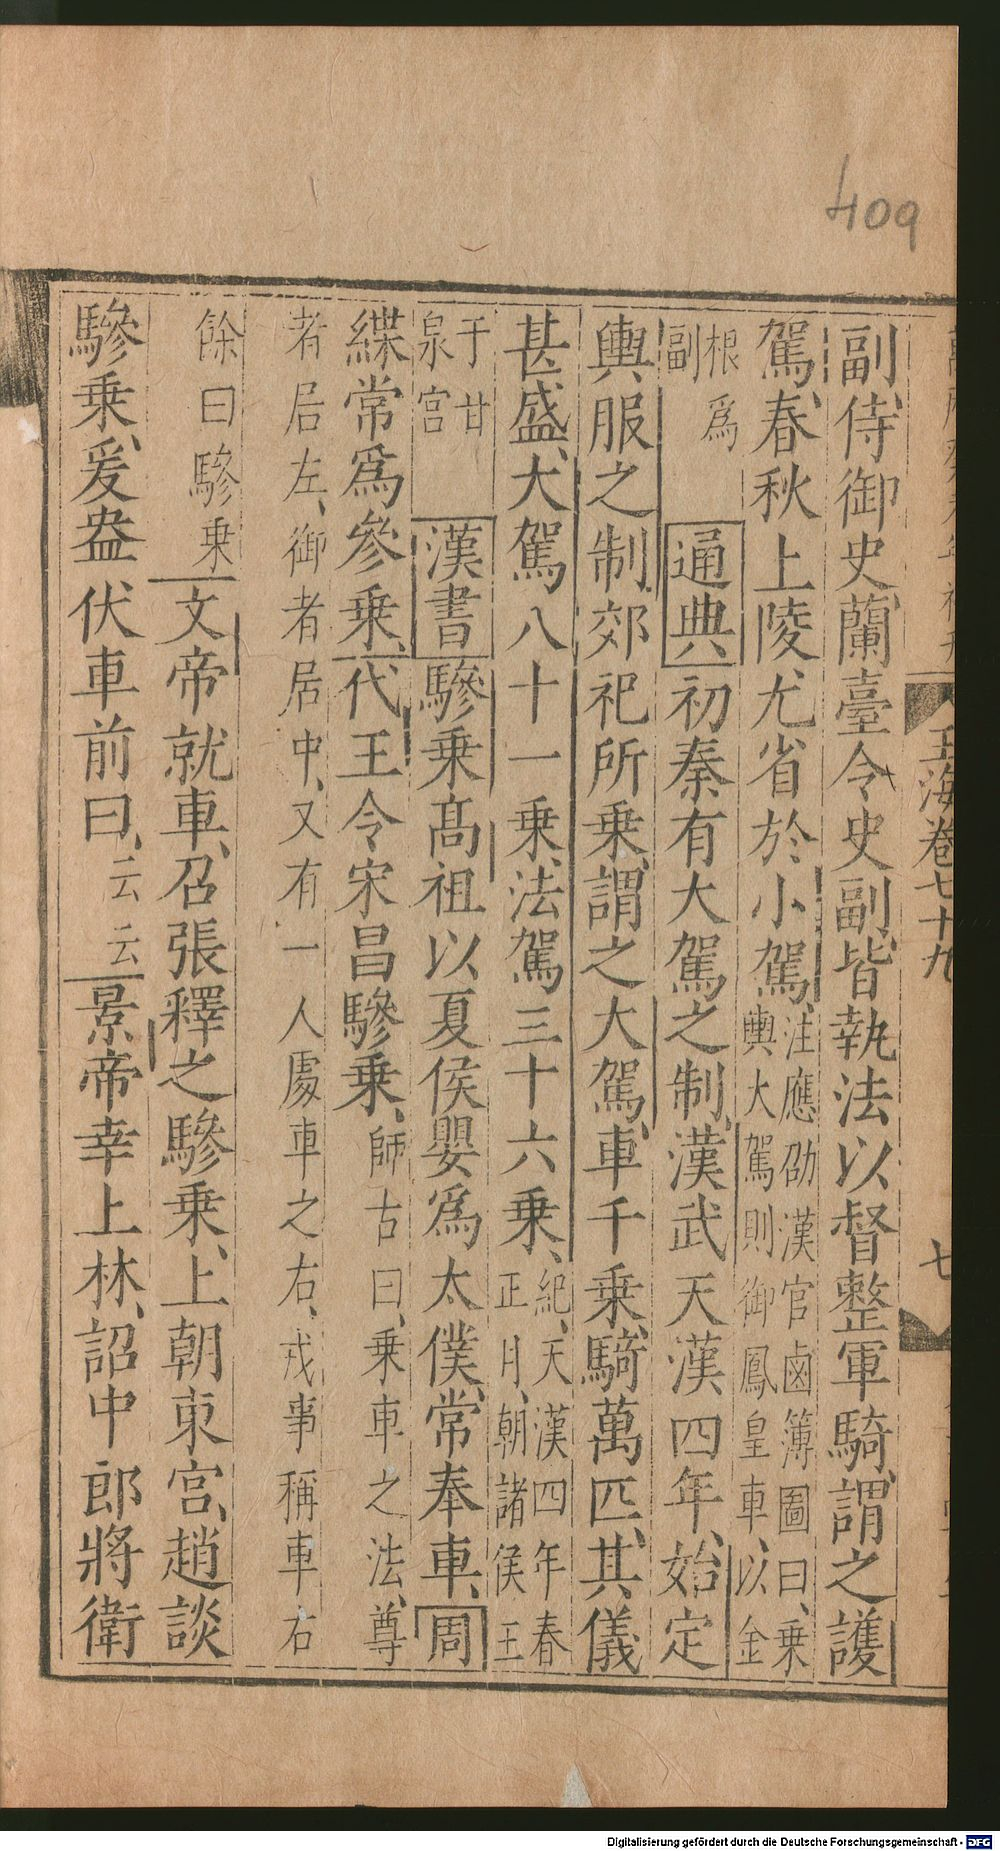 409
玉海卷七十九
七
副侍御史蘭臺令史副皆執法以督整軍騎謂之護
駕春秋上陵尤省於小駕注應劭漢官鹵簿圖曰乘
輿大駕則御鳳皇車以金
根爲
副
通典初秦有大駕之制漢武天漢四年始定
輿服之制郊祀所乘謂之大駕車千乘騎萬匹其儀
甚盛大駕八十一乘法駕三十六乘紀天漢四年春
正月朝諸侯王
于甘
泉宮
漢書驂乘高祖以夏侯嬰爲太僕常奉車周
緤常爲參乘代王令宋昌驂乘師古曰乘車之法尊
者居左御者居中又有一人處車之右戎事稱車右
餘曰驂乘文帝就車召張釋之驂乘上朝東宮趙談
驂乘爰盎伏車前曰云云景帝幸上林詔中郎將衛
Digitalisierung gefördert durch die Deutsche Forschungsgemeinschaft - DFG